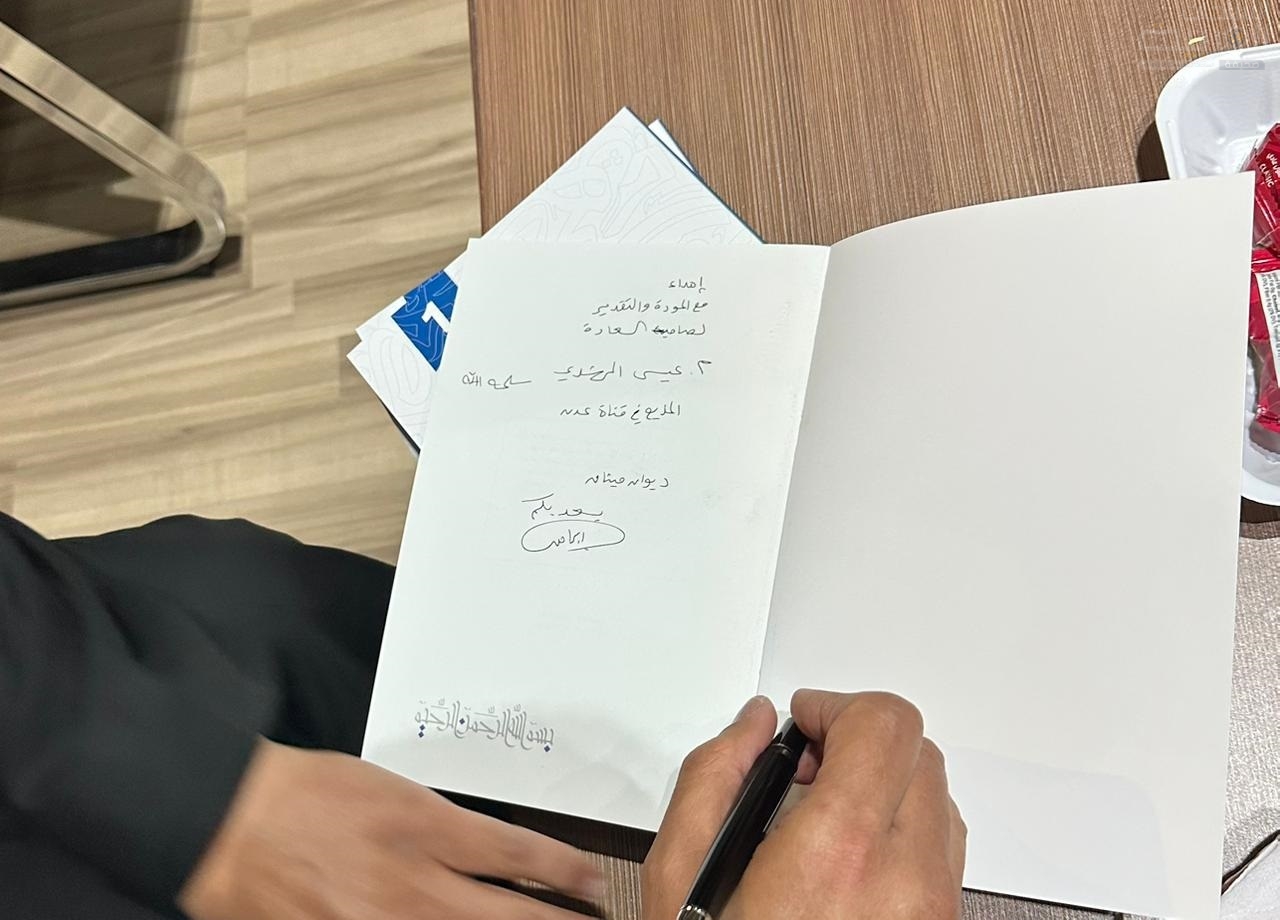 إهداء
مع المودة والتقدير
لصاحب السعادة
م. عيسى الرشدي سلمه الله
المذيع في قناة عدن
ديوان ميثاق
يسعد بكم
بسم الله الرحمن الرحيم
1
CLASSIC